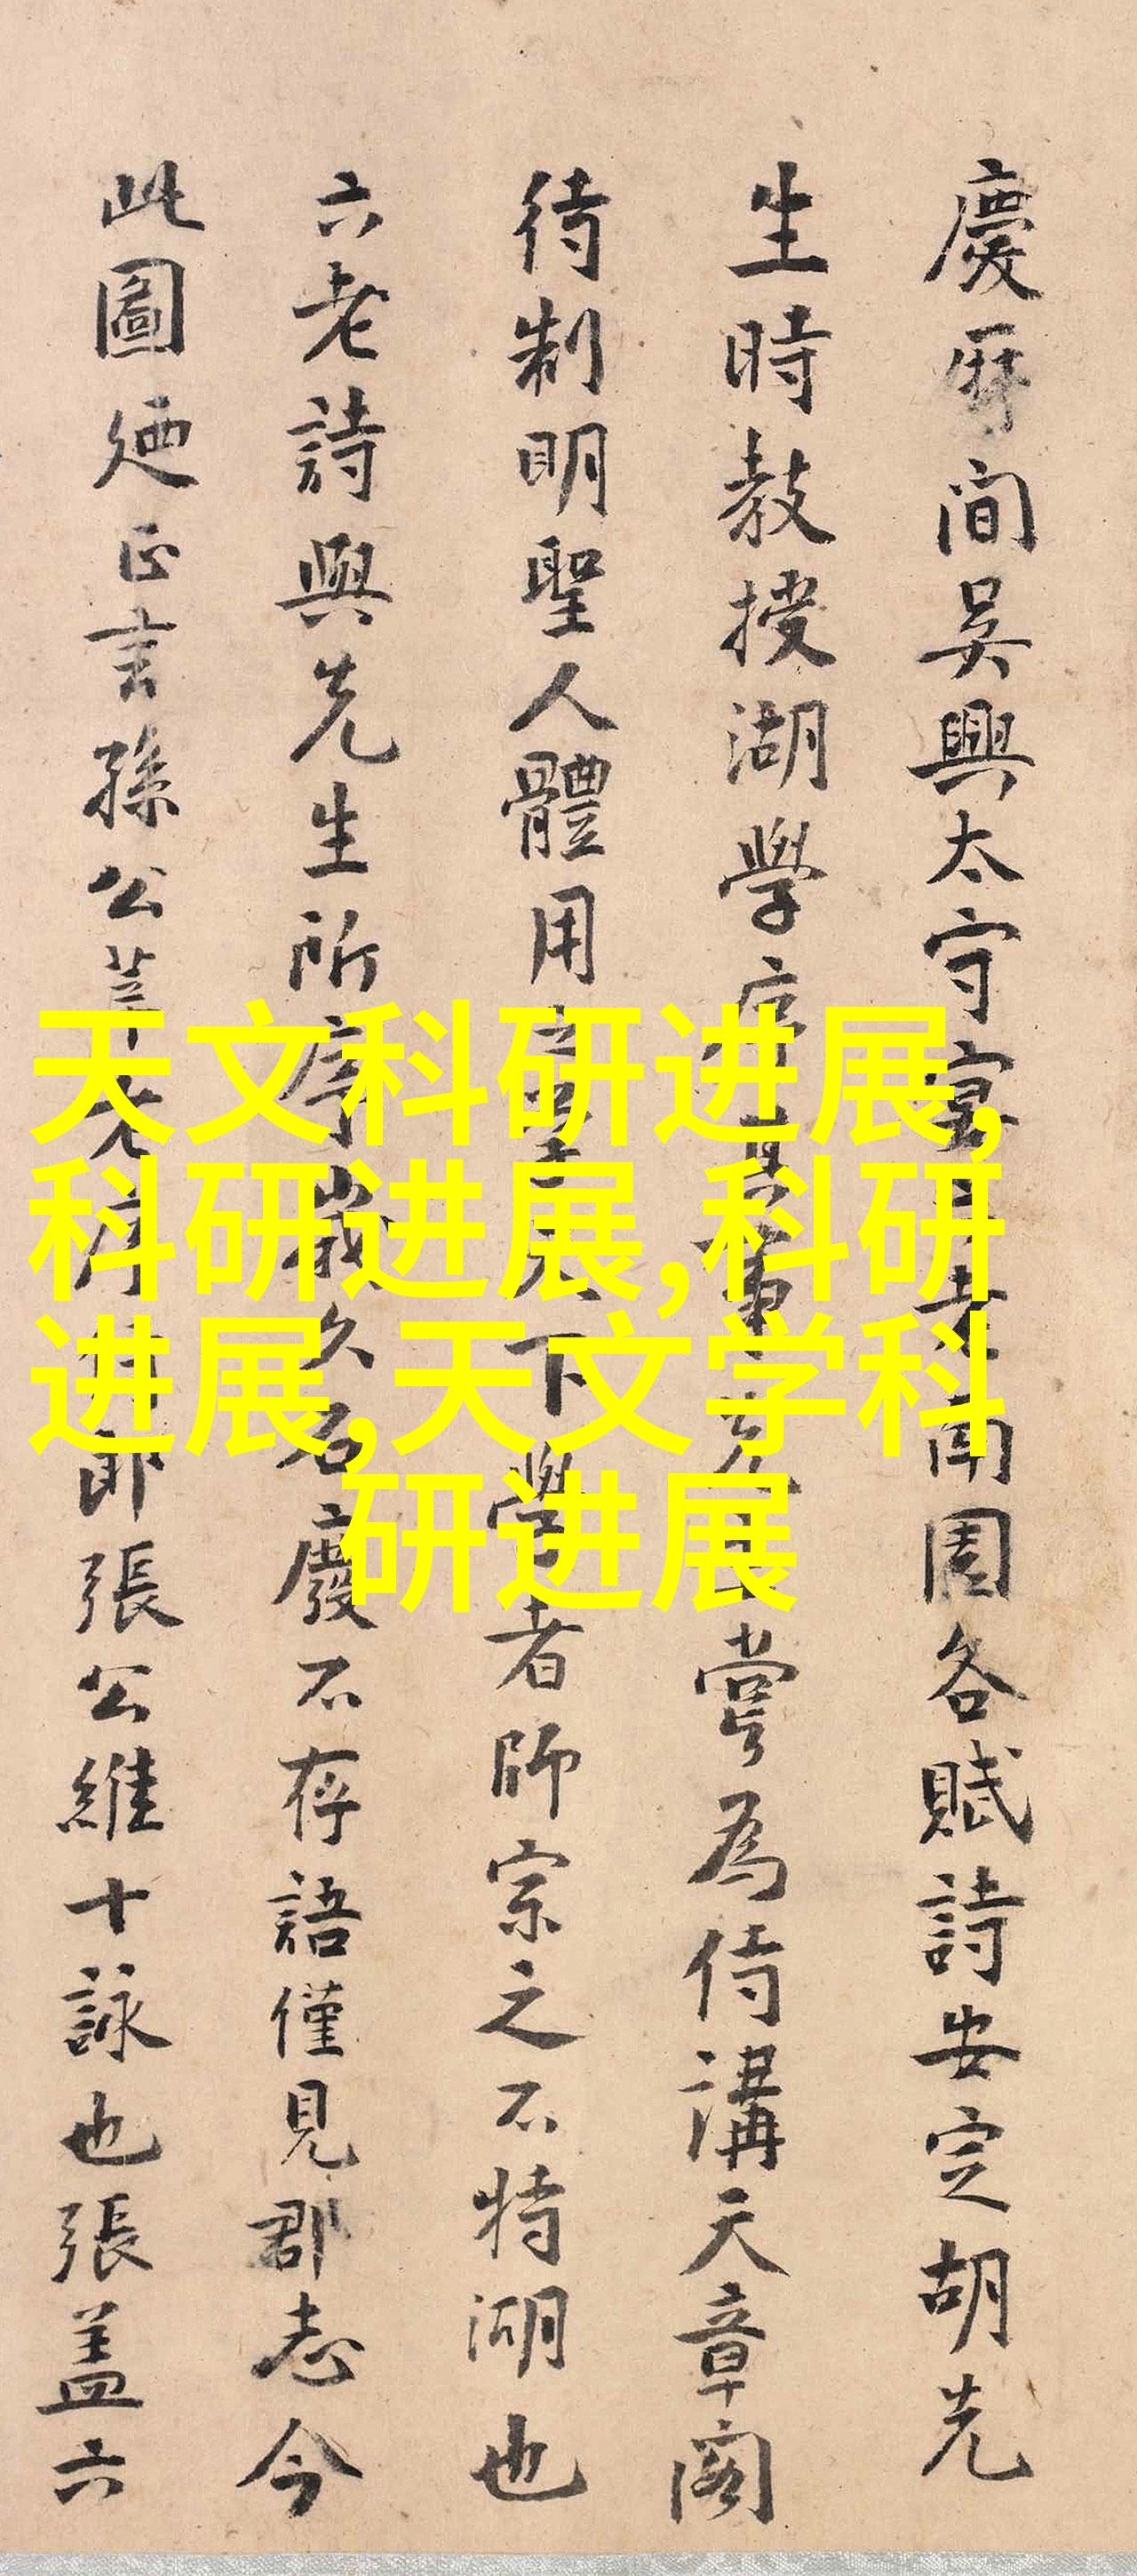 慶曆間吳興太守宴六老南園各賦詩安定胡先
生時教授湖學序其事先生嘗為侍講天章閣
待制明聖人體用以下學者師宗之不特湖也
六老詩與先生所序歲久石廢不存語僅見郡志今
此圖廼正言孫公莘老序侍郎張公維十詠也張蓋六
天文科研进展,
科研进展,科研
进展,天文学科
研进展